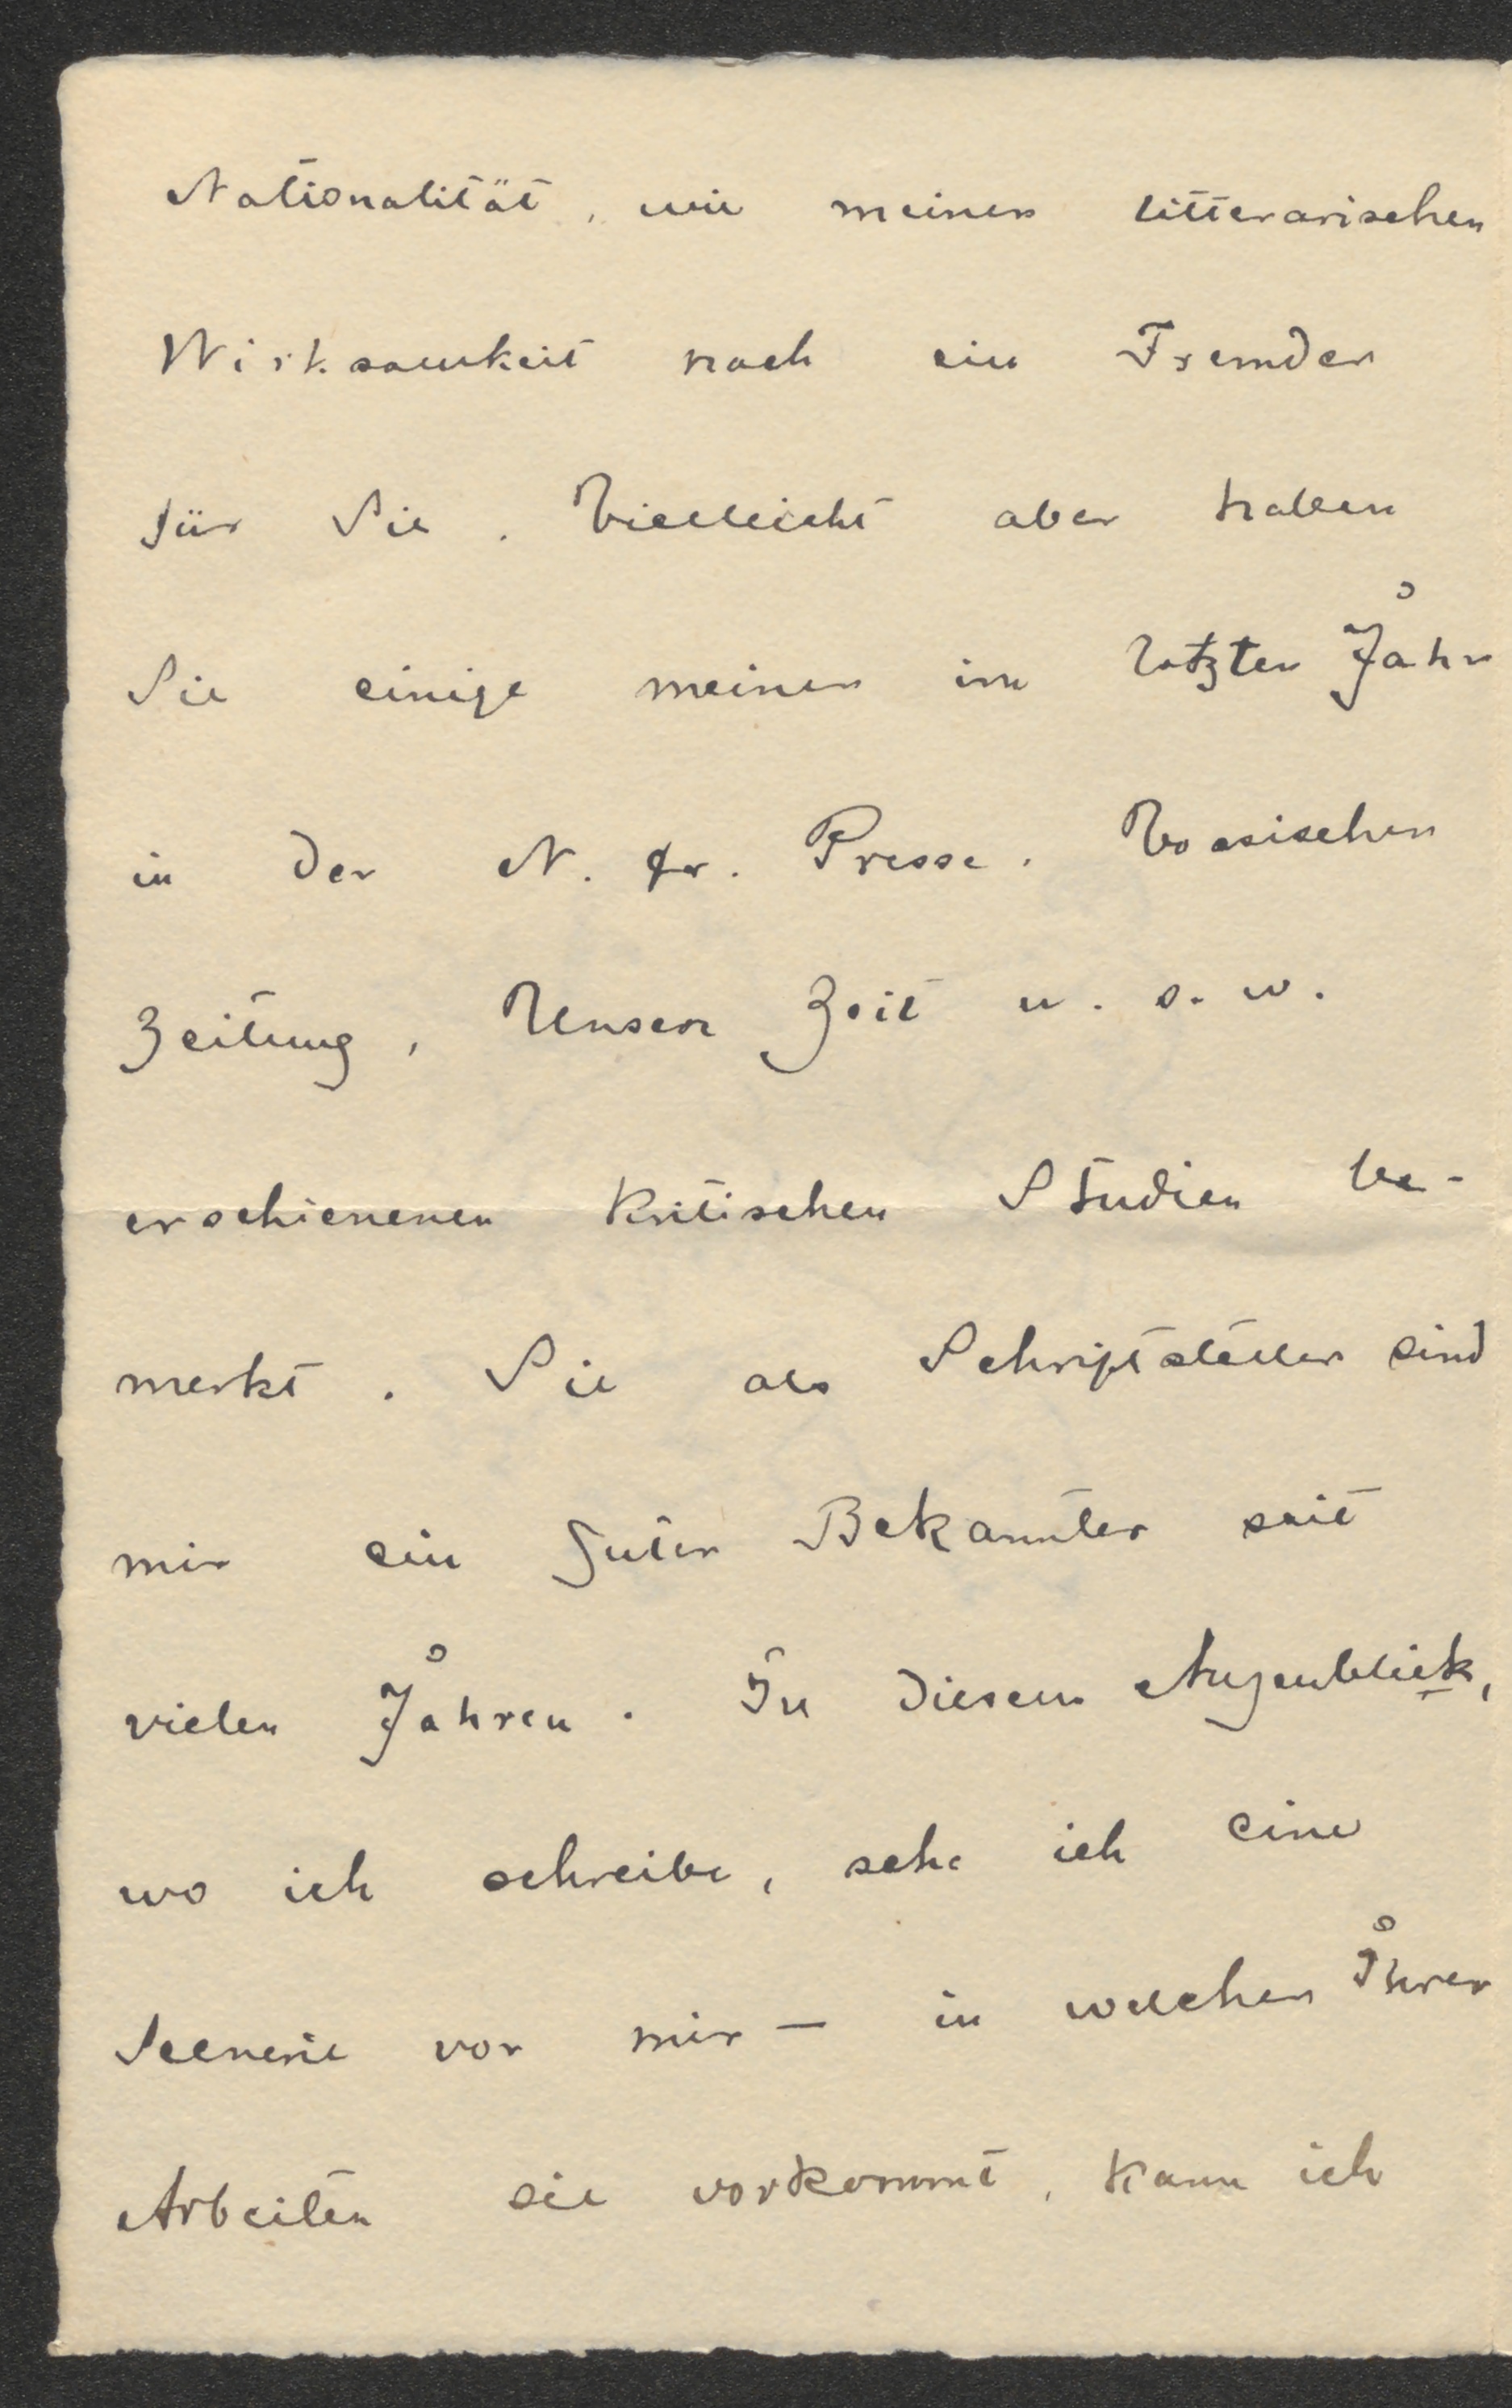 Nationalität, wie meiner litterarischen
Wirksamkeit nach ein Fremder
für Sie. Vielleicht aber haben
Sie einige meiner im letzten Jahr
in der N. fr. Presse, Vossischen
Zeitung, Unsere Zeit u. s. w.
erschienenen kritischen Studien be-
merkt. Sie als Schriftsteller sind
mir ein guter Bekannter seit
vielen Jahren. In diesem Augenblick,
wo ich schreibe, sehe ich eine
Scenerie vor mir – in welcher Ihrer
Arbeiten sie vorkommt, kann ich